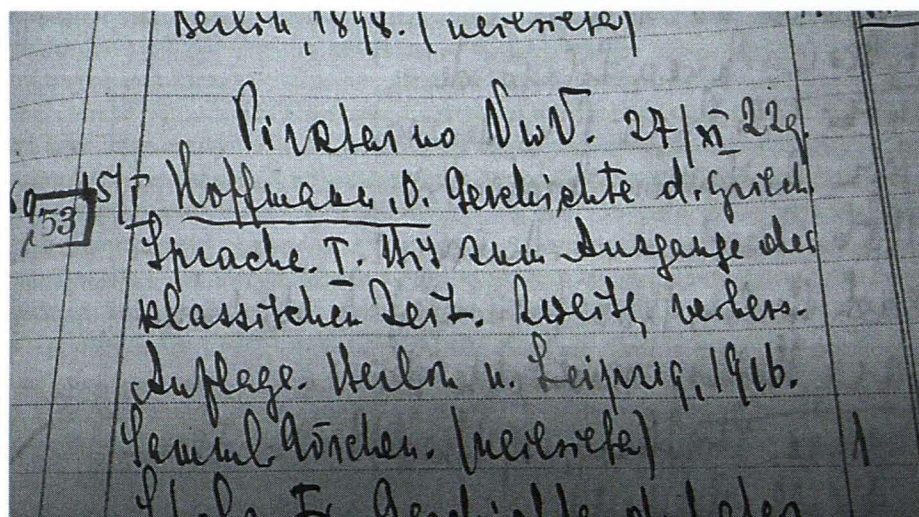 Berlin, 1898. (neiesieta)
Pirktas no V. u. V. 27/XI 22g.
53 15/I Hoffmann, O. Geschichte d. griech.
Sprache. I. Bis zum Ausgange der
klassischen Zeit. Zweite, verbess.
Auflage. Berlin u. Leipzig, 1916.
Samml. Göschen. (neiesieta) 1
Geschichte d.